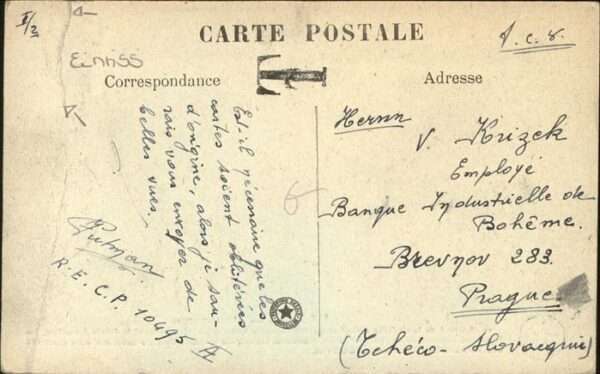 I/2
CARTE POSTALE
T.C.V.
Einriss
T
Correspondance
Adresse
Est-il nécessaire que les
cartes soient oblitérées
d'origine, alors je sau-
rais vous envoyer de
belles vues.
Putman
R.E.C.P. 10495
Herrn
V. Krizek
Employé
Banque Industrielle de
Bohême.
Brevnov 283.
Prague
(Tchéco-Slovaquie)